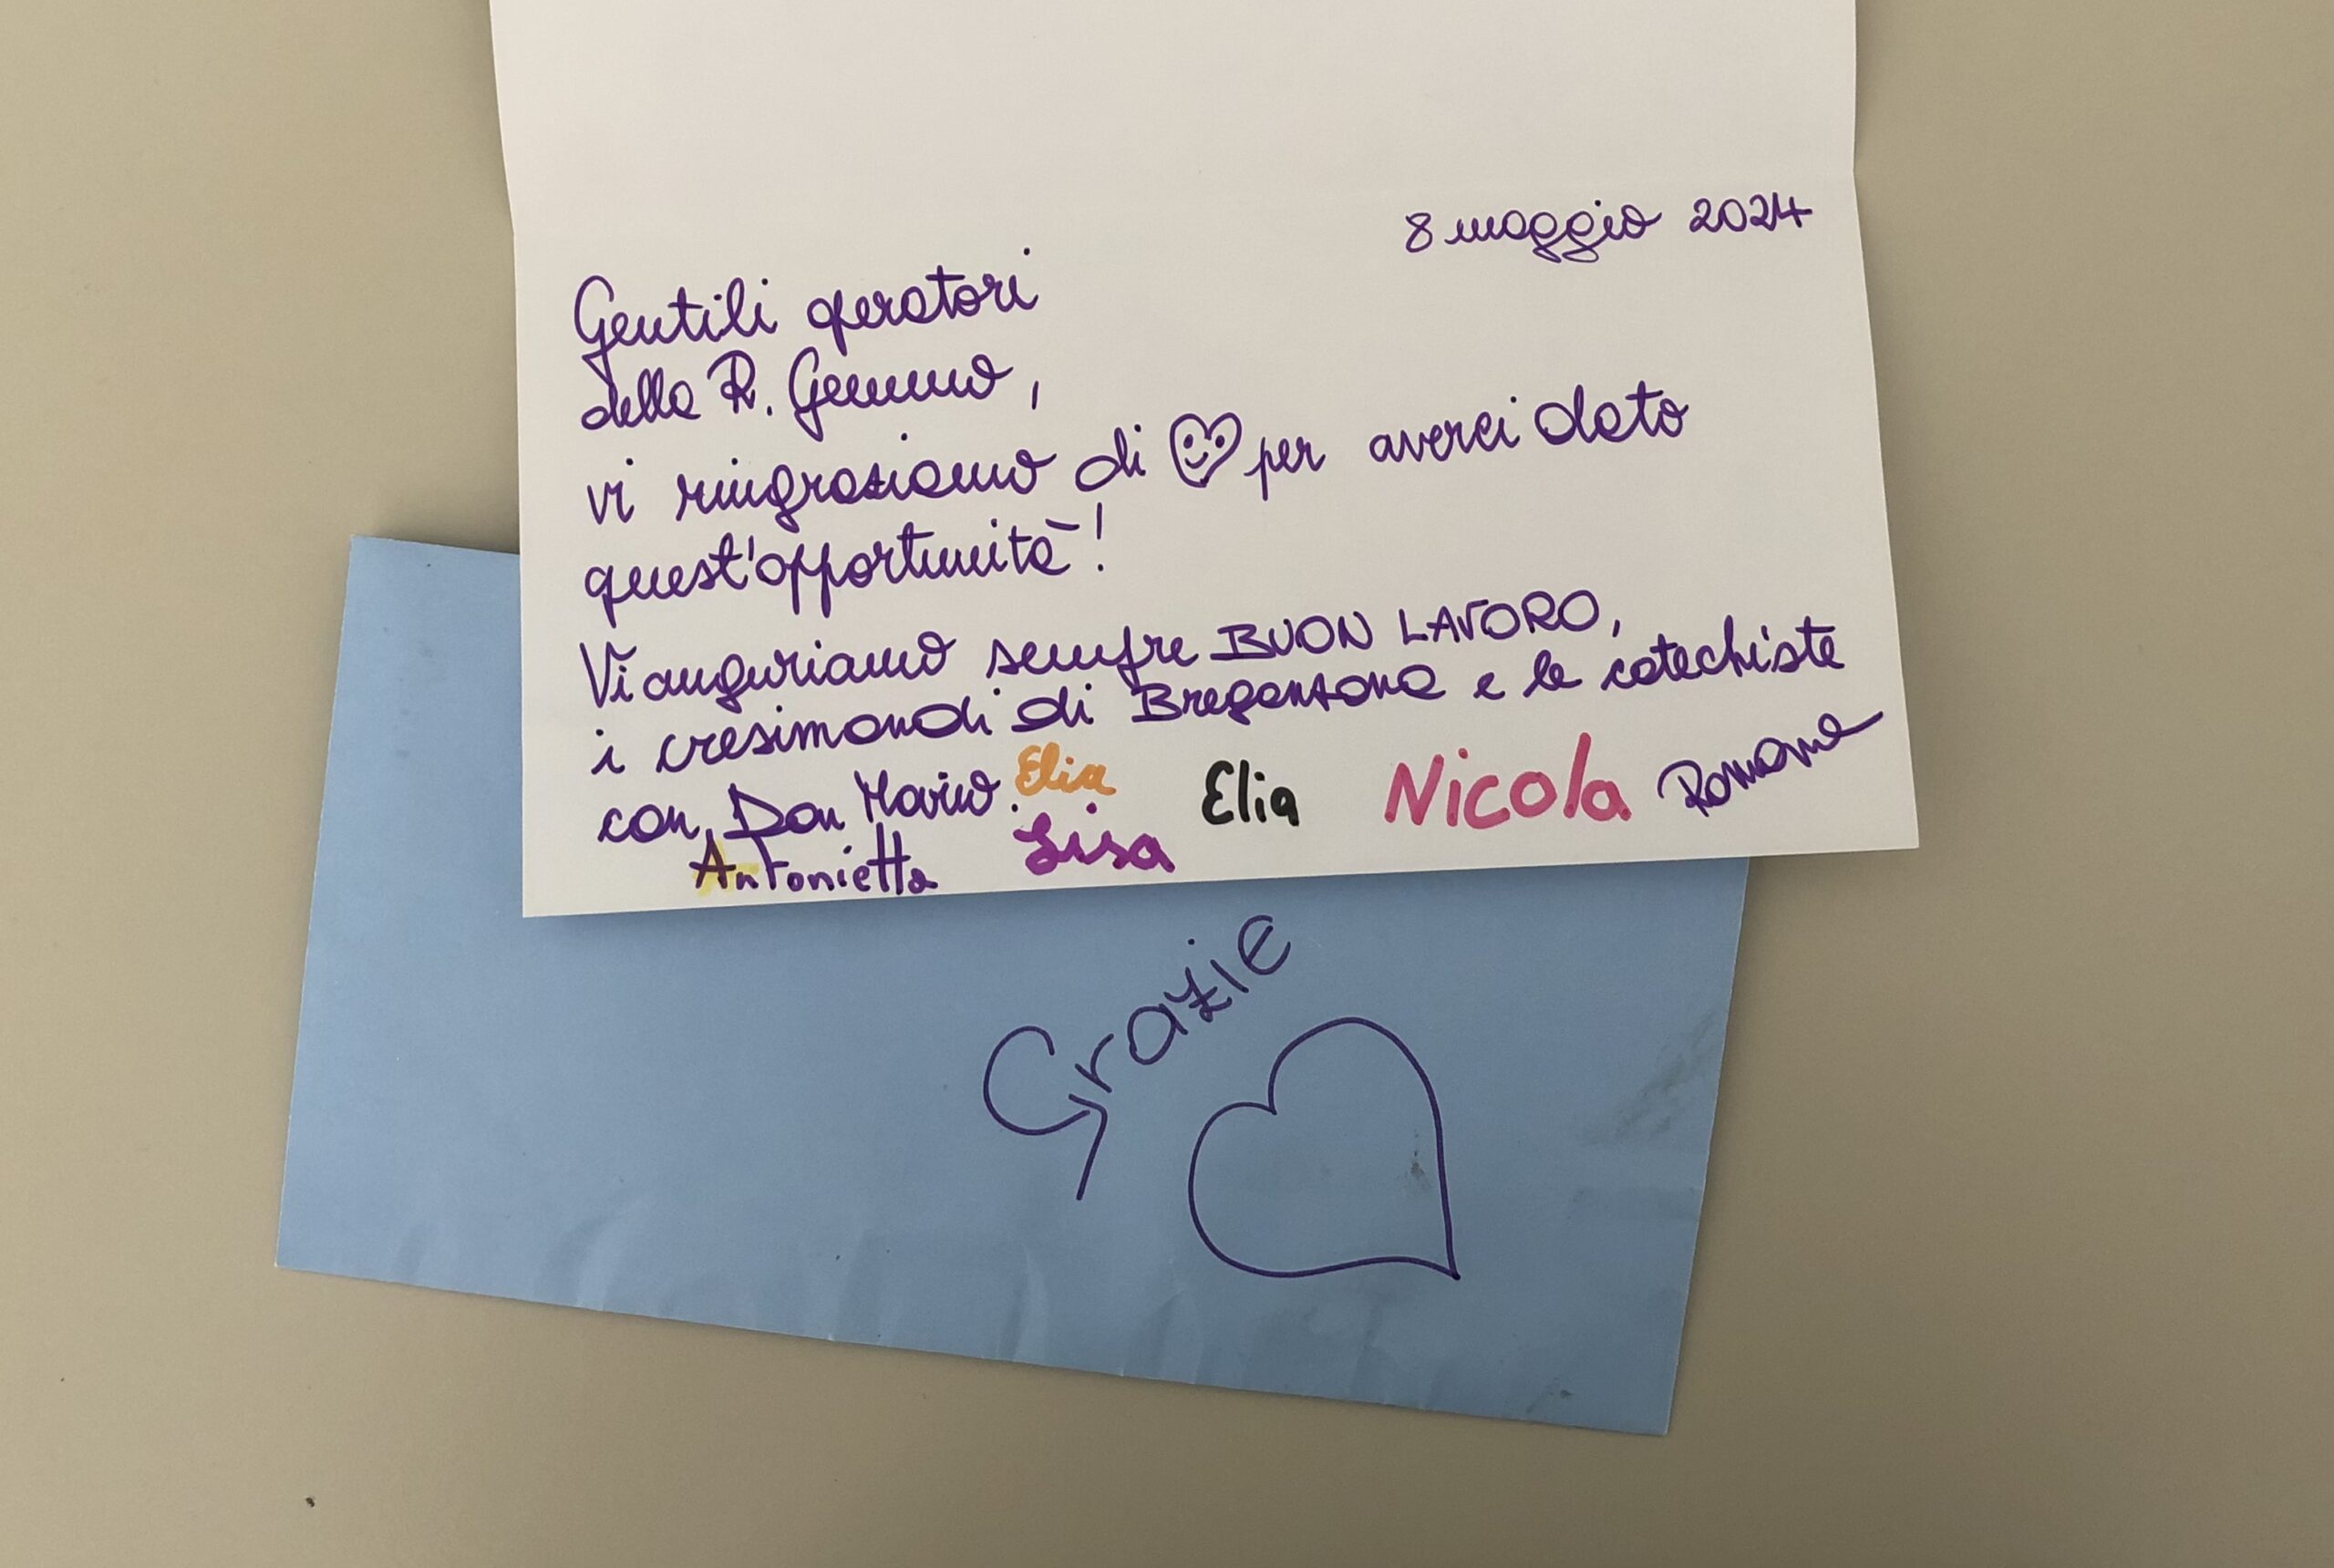 8 maggio 2024
Gentili operatori
della R. Gemmo,
vi ringraziamo di per averci dato
quest'opportunità!
Vi auguriamo sempre BUON LAVORO,
i cresimandi di Breganzona e le catechiste
con Don Mario. Elia Elia Nicola Romana
Antonietta Lisa
Grazie